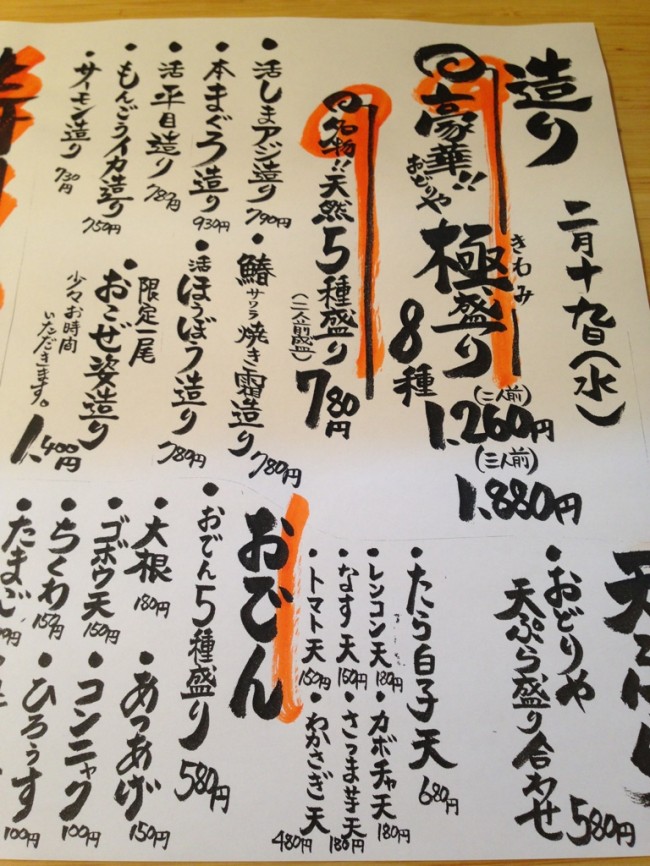 造り 二月十九日(水)
豪華!!おどりや極盛り8種
きわみ
(二人前)
1,260円
(三人前)
1,880円
名物!!天然5種盛り
(二人前盛)
780円
・活しまアジ造り 790円
・本まぐろ造り 930円
・活平目造り 787円
・もんごうイカ造り 750円
・サーモン造り 730円
・鰆サワラ焼き霜造り 780円
・活ほうぼう造り 780円
限定一尾
・おこぜ姿造り
少々お時間
いただきます。
1,400円
・おどりや
天ぷら盛り合わせ 580円
・たら白子天 680円
・レンコン天 180円
・なす天 150円
・トマト天 150円
・カボチャ天 180円
・さつま芋天 180円
・わかさぎ天 480円
おでん
・おでん5種盛り 580円
・大根 180円
・ゴボウ天 150円
・ちくわ 150円
・たまご
・あつあげ 150円
・コンニャク 100円
・ひろうす 100円